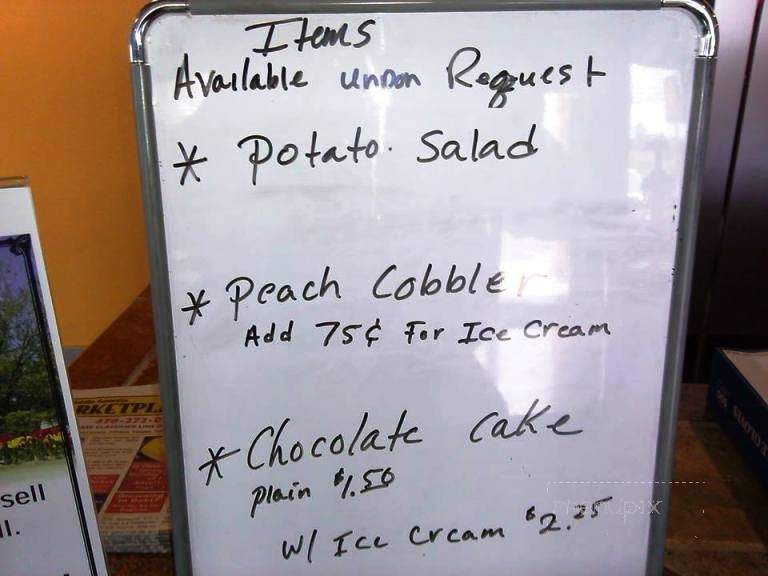 Items
Available unpon Request
* Potato Salad
* Peach Cobbler
Add 75¢ For Ice Cream
* Chocolate cake
plain $1.50
W/ Ice Cream $2.25
menupix
RKETPL
478-272-0
sell
ll.